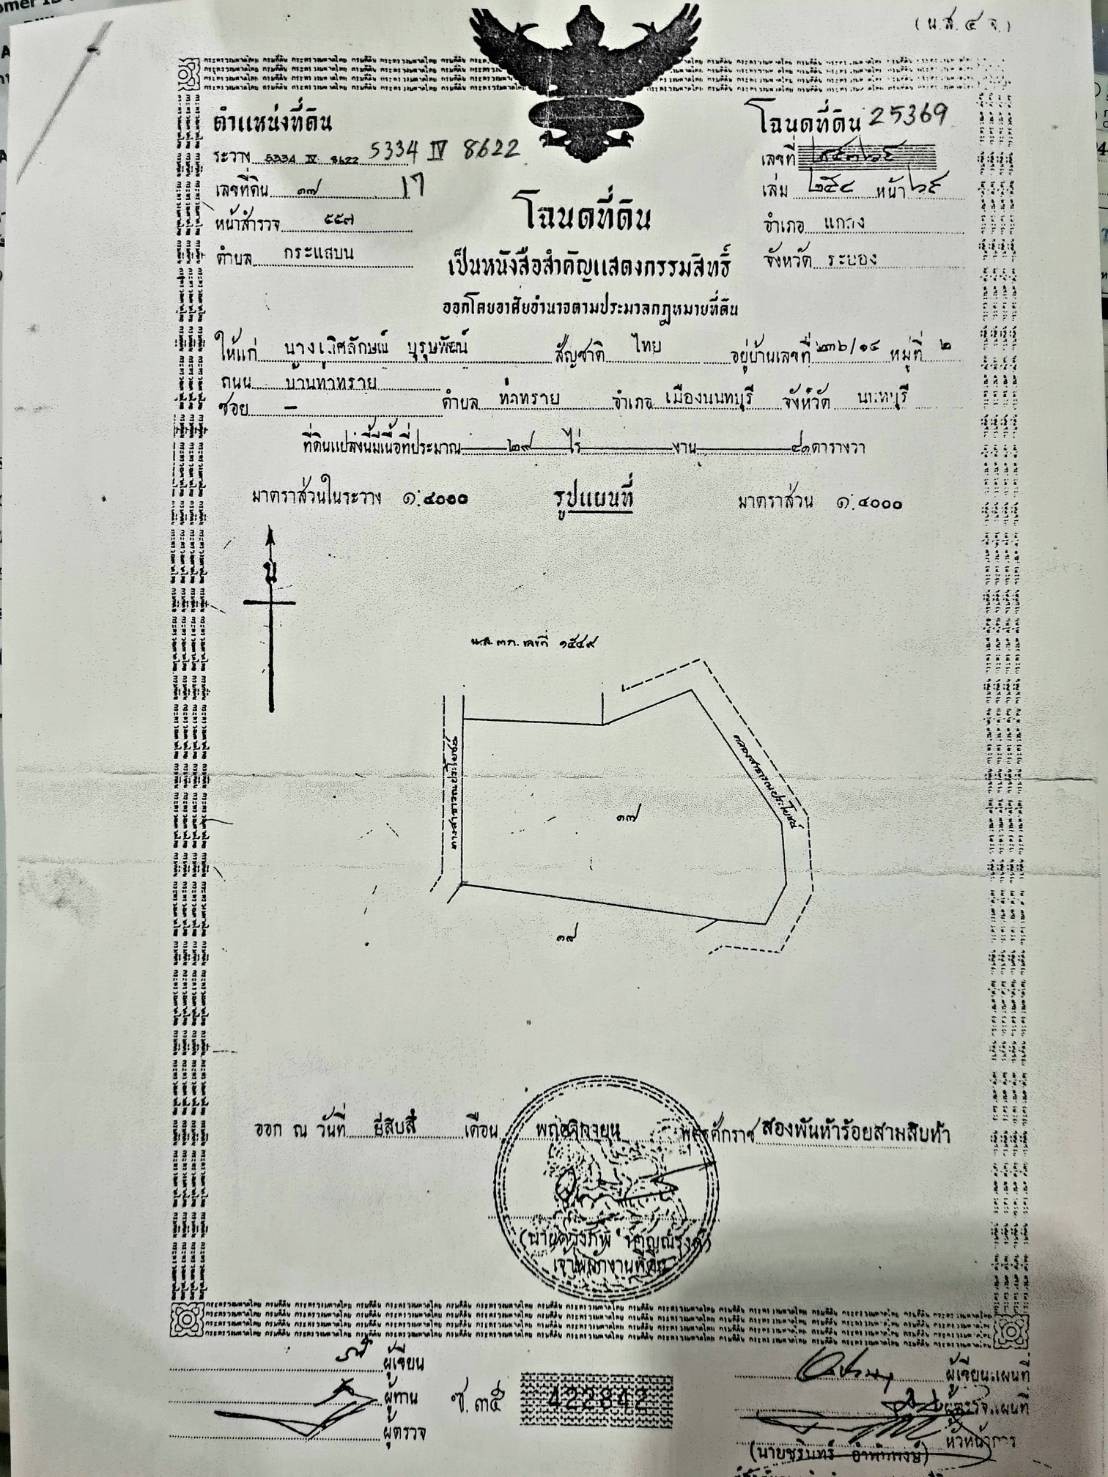 (น.ส.๔ จ.)
ตำแหน่งที่ดิน
ระวาง 5334 IV 8622 5334 IV 8622
เลขที่ดิน ๑๗ 17
หน้าสำรวจ ๕๕๗
ตำบล กระแสบน
โฉนดที่ดิน 25369
เลขที่ ๒๕๓๖๙
เล่ม ๒๕๔ หน้า ๖๙
อำเภอ แกลง
จังหวัด ระยอง
โฉนดที่ดิน
เป็นหนังสือสำคัญแสดงกรรมสิทธิ์
ออกโดยอาศัยอำนาจตามประมวลกฎหมายที่ดิน
ให้แก่ บุรุษพัฒน์ สัญชาติ ไทย อยู่บ้านเลขที่ ๒๓๖/๑๔ หมู่ที่ ๒
ถนน บ้านท่าทราย
ซอย — ตำบล ท่าทราย อำเภอ เมืองนนทบุรี จังหวัด นนทบุรี
ที่ดินแปลงนี้มีเนื้อที่ประมาณ ๒๙ ไร่ — งาน — ๔๑ ตารางวา
มาตราส่วนในระวาง ๑:๔๐๐๐ รูปแผนที่ มาตราส่วน ๑:๔๐๐๐
น
น.ส.๓ก. เลขที่ ๑๕๔๙
ทางสาธารณประโยชน์
คลองสาธารณประโยชน์
๑๗
๑๙
ออก ณ วันที่ ยี่สิบสี่ เดือน พฤศจิกายน พุทธศักราช สองพันห้าร้อยสามสิบห้า
เจ้าพนักงานที่ดิน
ผู้เขียน
ผู้ทาน
ผู้ตรวจ
ช.๓๕ 422842
ผู้เขียนแผนที่
ผู้ตรวจแผนที่
หัวหน้าการ